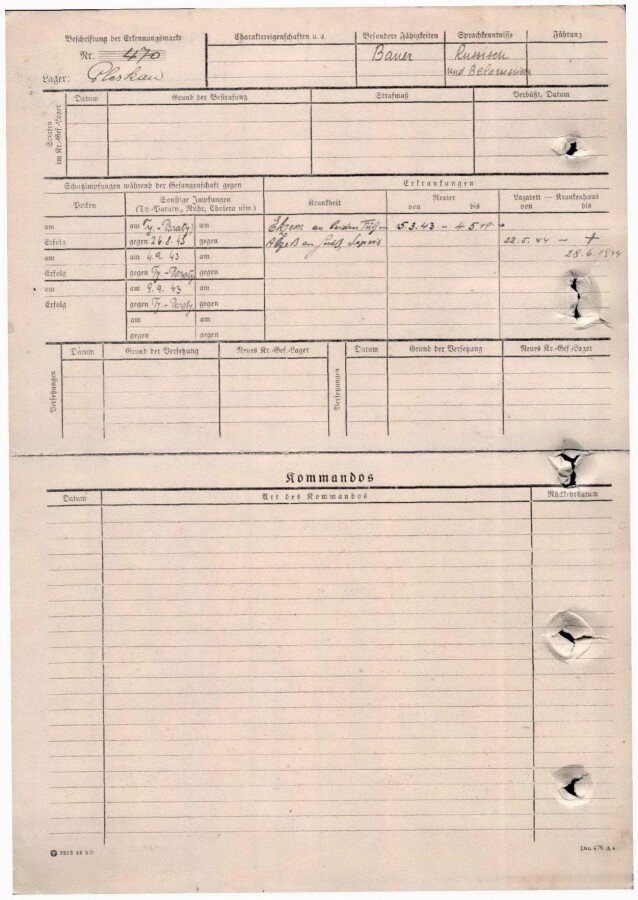 Beschriftung der Erkennungsmarke
Nr. 470
Lager: Pleskau
Charaktereigenschaften u. a.
Besondere Fähigkeiten
Bauer
Sprachkenntnisse
Russisch
und
Führung
Strafen
im Kr.-Gef.-Lager
Datum
Grund der Bestrafung
Strafmaß
Verbüßt, Datum
Schutzimpfungen während der Gefangenschaft gegen
Erkrankungen
Pocken
Sonstige Impfungen
(Ty.-Paraty., Ruhr, Cholera usw.)
Krankheit
Revier
von bis
Lazarett — Krankenhaus
von bis
am
am am
Ekzem an beiden Füßen 5.3.43 –
Erfolg
gegen 26.8.43 gegen
an Sepsis 28.5.44 – +
28.6.1944
am
am 4.9.43 am
Erfolg
gegen gegen
am
am 9.9.43 am
Erfolg
gegen gegen
am am
gegen gegen
Versetzungen
Datum
Grund der Versetzung
Neues Kr.-Gef.-Lager
Versetzungen
Datum
Grund der Versetzung
Neues Kr.-Gef.-Lager
Kommandos
Datum
Art des Kommandos
Rückkehrdatum
Din 476 A 4